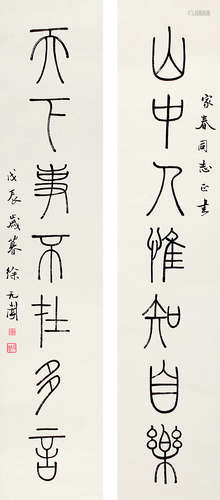 家春同志正书
山中人惟知自樂
天下事不在多言
戊辰歲暮徐无闻